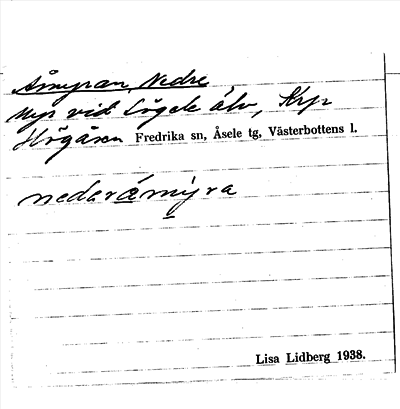 Åmyran, Nedre
myr vid Lögde älv, Krp
Högåsen Fredrika sn, Åsele tg, Västerbottens l.
nederåmyra
Lisa Lidberg 1938.